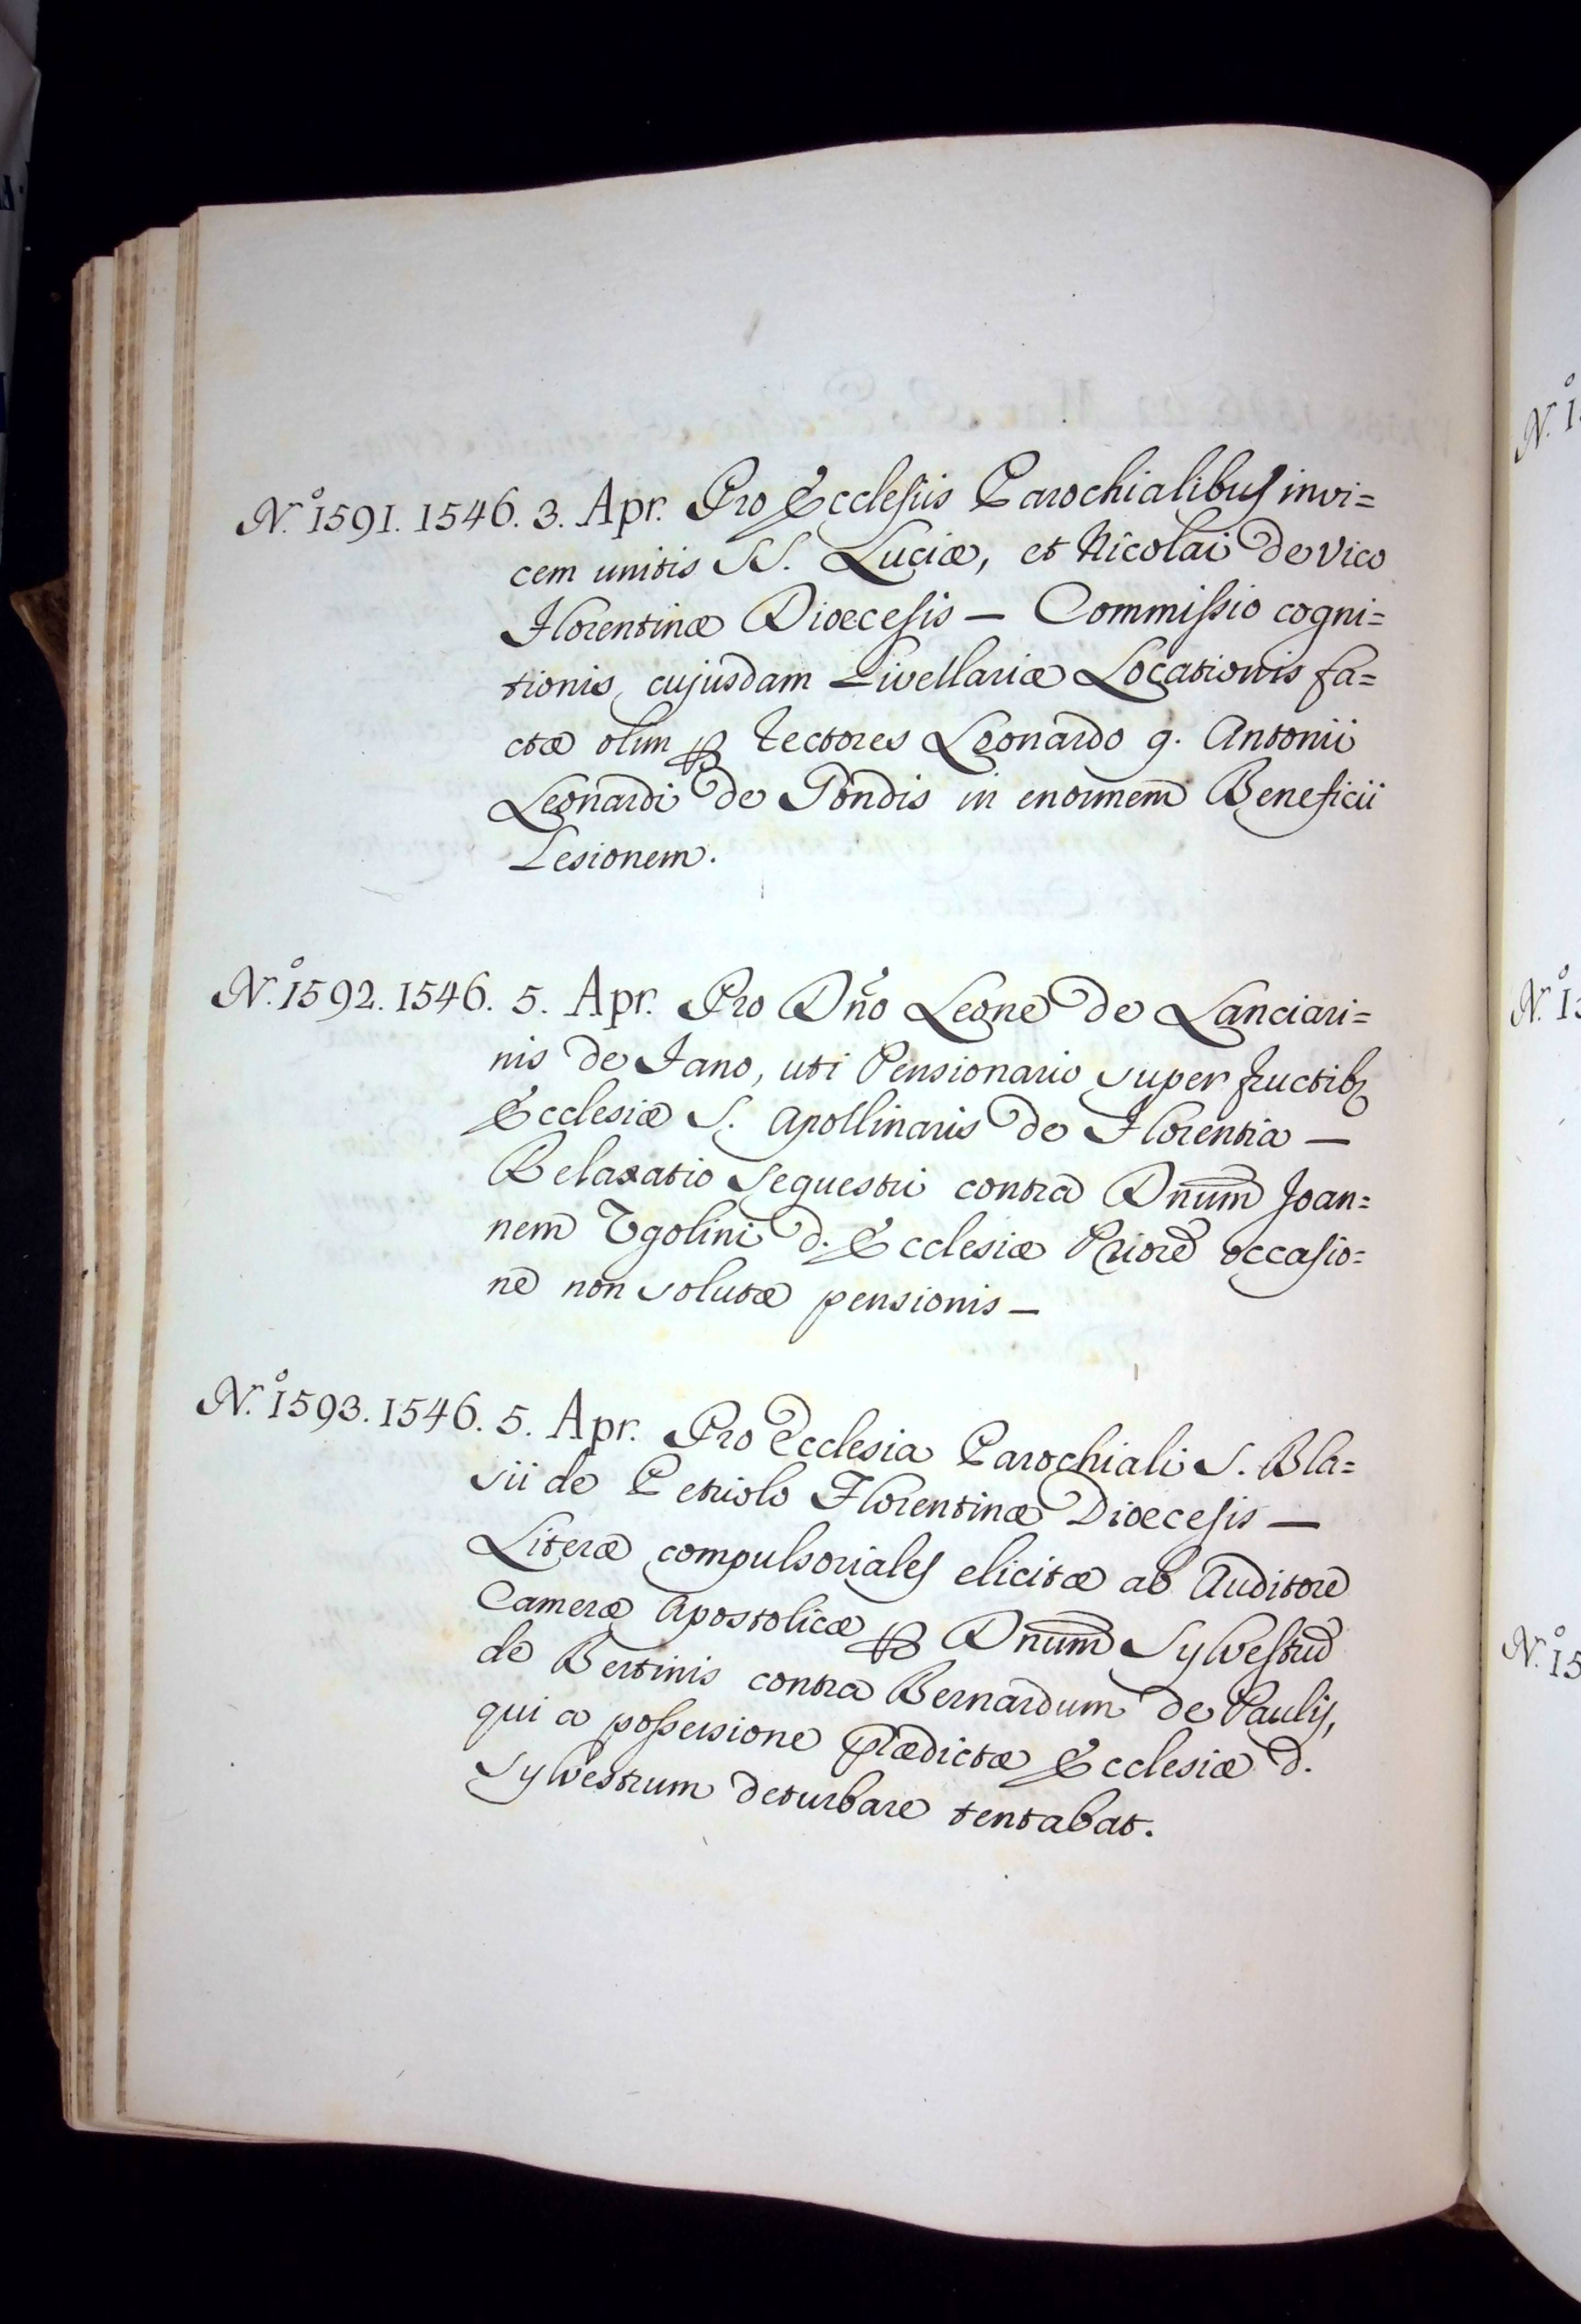 N.º 1591. 1546. 3. Apr. Pro Ecclesiis Parochialibus invi=
cem unitis SS. Luciæ, et Nicolai de Vico
Florentinæ Dioecesis — Commissio cogni=
tionis, cujusdam Livellariæ Locationis fa=
ctæ olim ꝑ Rectores Leonardo q. Antonii
Leonardi de Pondis in enormem Beneficii
Lesionem.
N.º 1592. 1546. 5. Apr. Pro Dño Leone de Lanciari=
nis de Fano, uti Pensionario super fructibꝫ
Ecclesiæ S. Apollinaris de Florentia —
Relaxatio Sequestri contra Dnum̅ Joan=
nem Ugolini d. Ecclesiæ Priore occasio=
ne non solutæ pensionis —
N.º 1593. 1546. 5. Apr. Pro Ecclesia Parochiali S. Bla=
sii de Petriolo Florentinæ Dioecesis —
Literæ compulsoriales elicitæ ab Auditore
Cameræ Apostolicæ ꝑ Dnum̅ Sylvestrū
de Bertinis contra Bernardum de Paulis,
qui a possessione prædictæ Ecclesiæ d.
Sylvestrum deturbare tentabat.
N. 1
N. 1
N.º 15